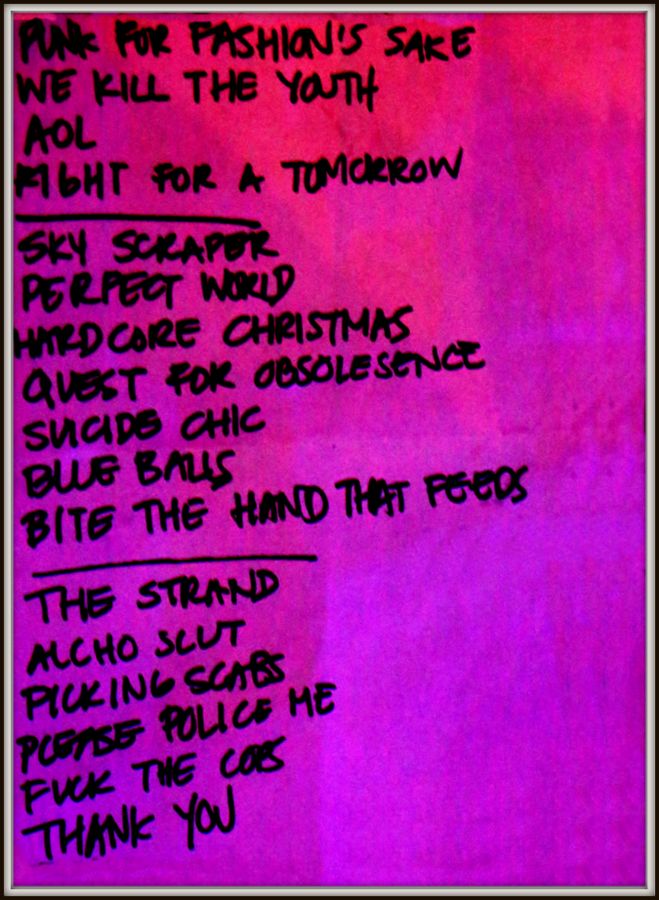 PUNK FOR FASHION'S SAKE
WE KILL THE YOUTH
AOL
FIGHT FOR A TOMORROW
SKY SCRAPER
PERFECT WORLD
HARDCORE CHRISTMAS
QUEST FOR OBSOLESENCE
SUICIDE CHIC
BLUE BALLS
BITE THE HAND THAT FEEDS
THE STRAND
ALCHO SLUT
PICKING SCABS
PLEASE POLICE ME
FUCK THE COPS
THANK YOU